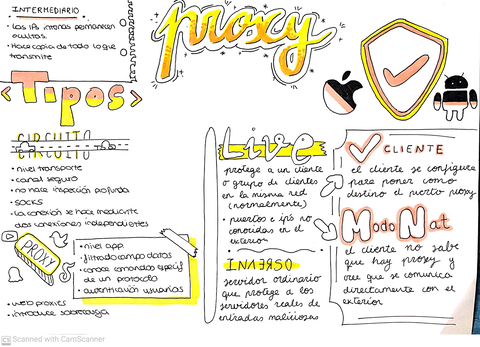 INTERMEDIARIO
• Las IPs internas permanecen
ocultas.
• Hace copia de todo lo que
transmite
proxy
<Tipos>
CIRCUITO
• nivel transporte
• canal seguro
• no hace inspección profunda
• SOCKS
• La conexión se hace mediante
dos conexiones independientes
PROXY
• nivel app
• filtrado campo datos
• conoce comandos específ
de un protocolo
• autentificación usuarios
• web proxies
• introduce sobrecarga
Live
protege a un cliente
o grupo de clientes
en la misma red
(normalmente)
• puertos e ip's no
conocidas en el
exterior
INVERSO
servidor ordinario
que protege a los
servidores reales de
entradas maliciosas
CLIENTE
el cliente se configura
para poner como
destino el puerto proxy
Modo Nat
el cliente no sabe
que hay proxy y
cree que se comunica
directamente con el
exterior
CS Scanned with CamScanner